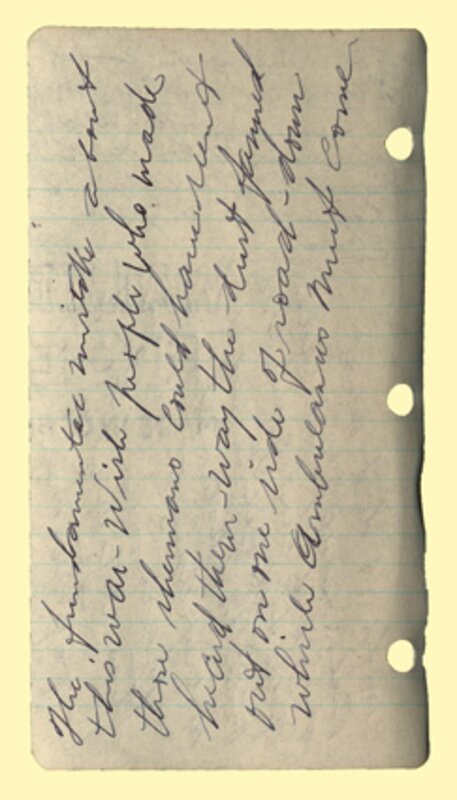 The fundamental mistake about
this war - Wish people who made
those could have
heard them - way the dust
out on one side of road - down
while Ambulances must come